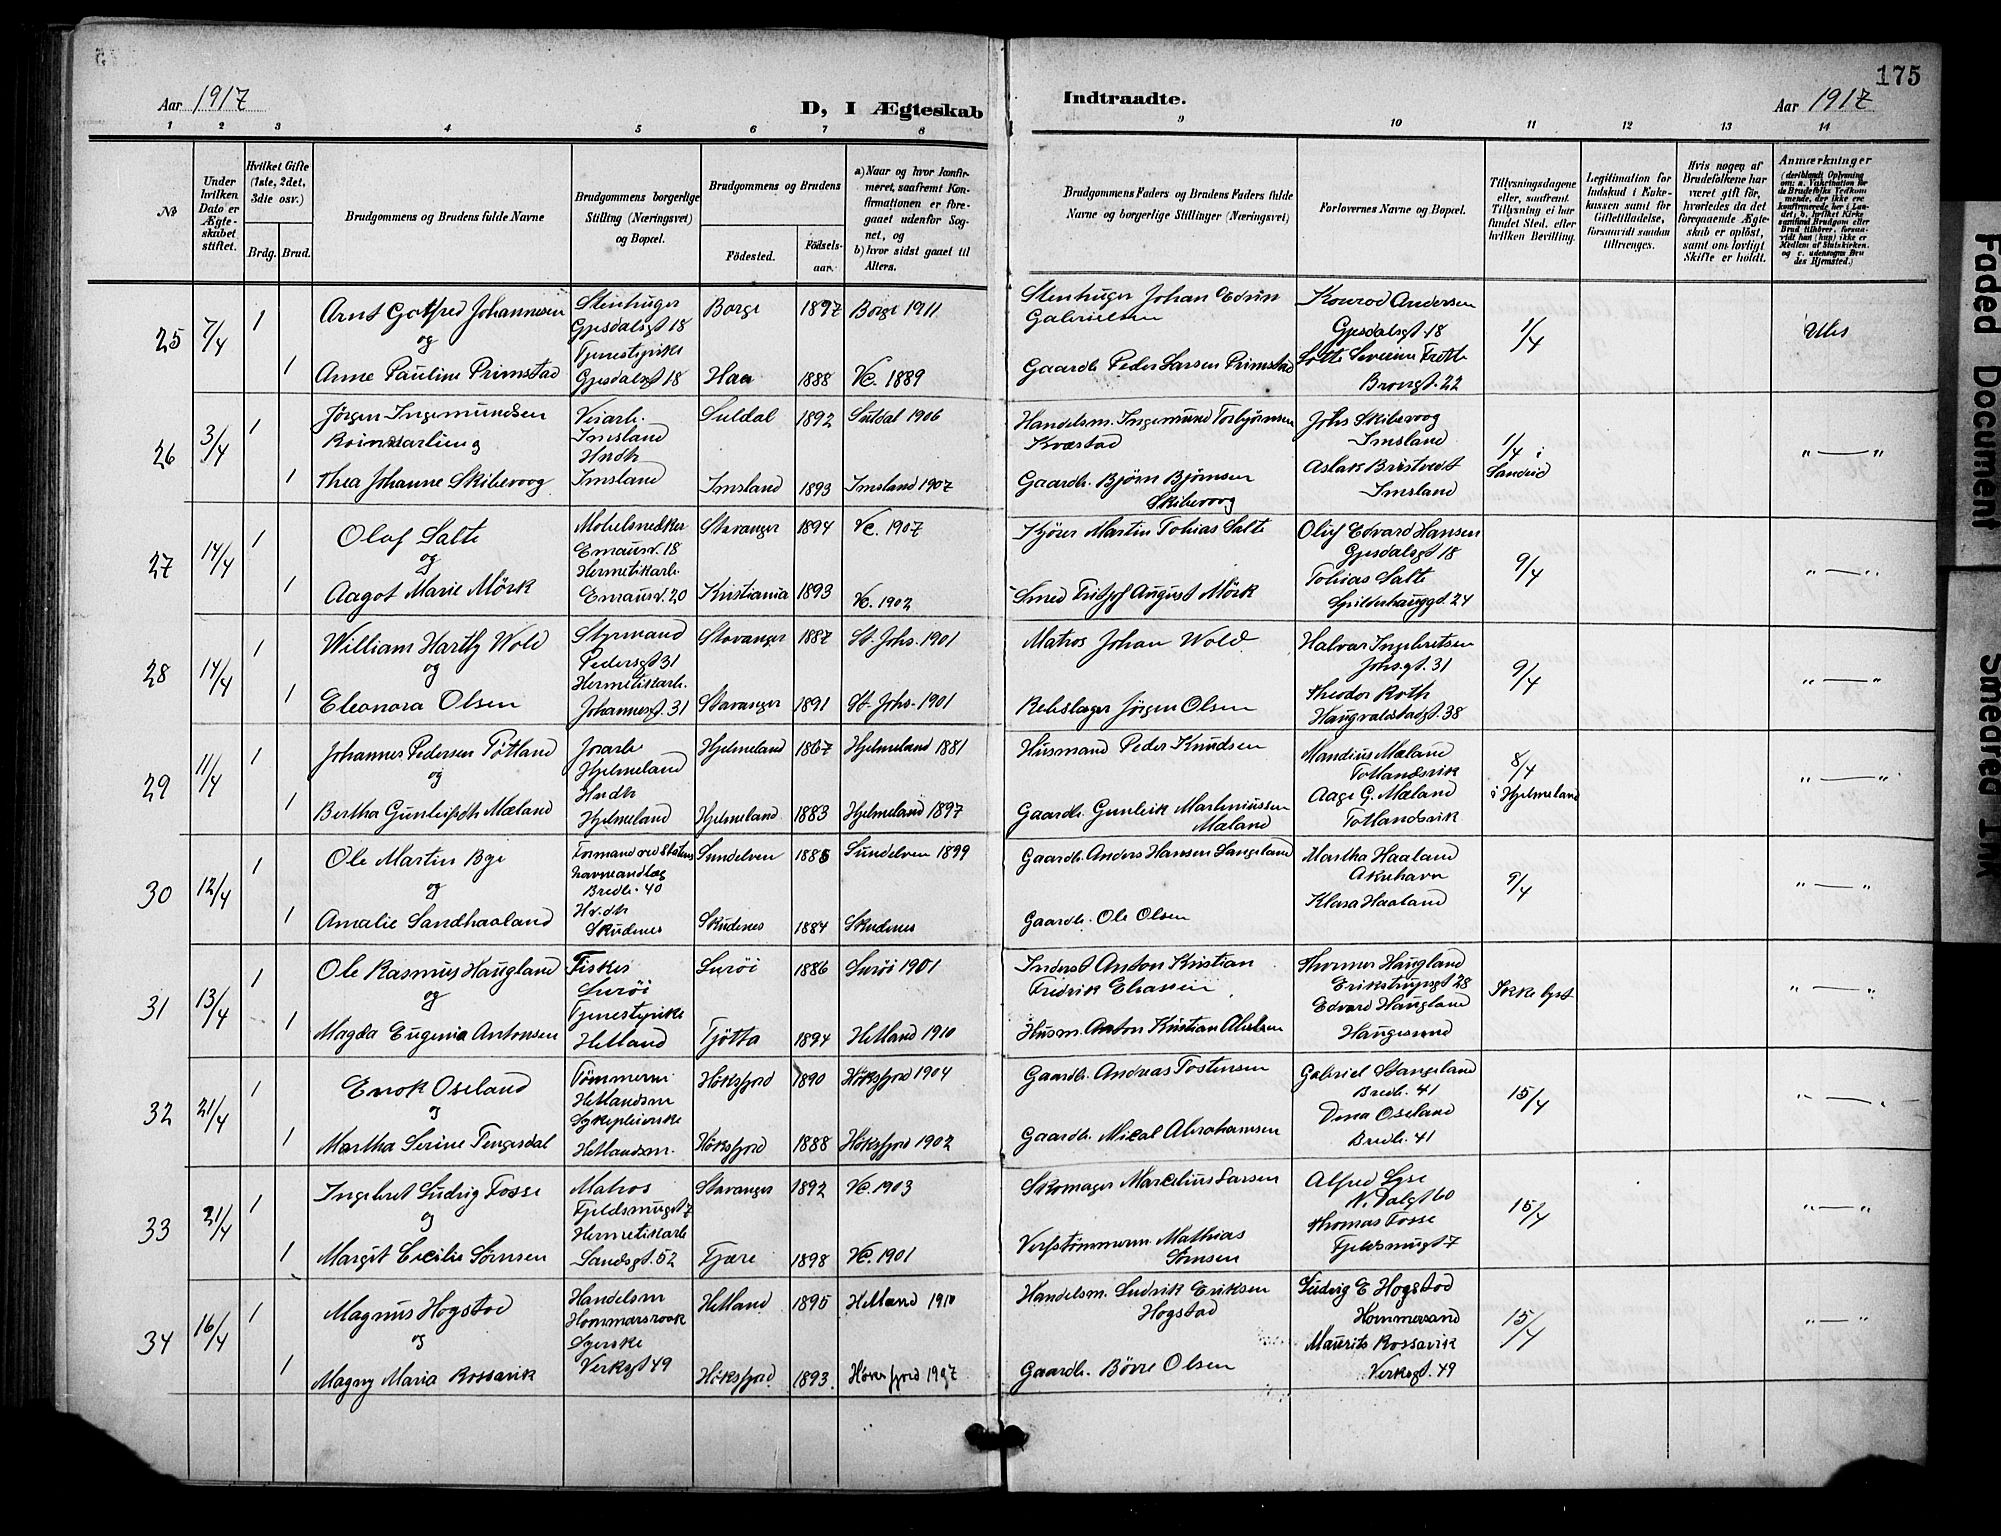 175
Aar 1917
D, I Ægteskab
Indtraadte.
Aar 1917
1 2 3 4 5 6 7 8 9 10 11 12 13 14
№
Under hvilken Dato er Ægteskabet stiftet.
Hvilket Gifte (1ste, 2det, 3die osv.)
Brdg. Brud.
Brudgommens og Brudens fulde Navne
Brudgommens borgerlige Stilling (Næringsvei) og Bopæl.
Brudgommens og Brudens
Fødested.
Fødselsaar.
a) Naar og hvor konfirmeret, saafremt Konfirmationen er foregaaet udenfor Sognet, og
b) hvor sidst gaaet til Alters.
Brudgommens Faders og Brudens Faders fulde Navne og borgerlige Stillinger (Næringsvei)
Forlovernes Navne og Bopæl.
Tillysningsdagene eller, saafremt Tillysning ei har fundet Sted, efter hvilken Bevilling.
Legitimation for Indskud i Enkekassen samt for Giftetilladelse, forsaavidt saadan tiltrænges.
Hvis nogen af Brudefolkene har været gift før, hvorledes da det foregaaende Ægteskab er opløst, samt om lovligt Skifte er holdt.
Anmærkninger
25 7/4 1 Arnt Gotfred Johannesen Stenhuger Borge 1897 Borge 1911 Stenhuger Johan Edvin Konrad Andersen
Gjesdalsgt 18 Gabrielsen Gjesdalsgt. 18 1/4 Attes
og Tjenestepike
1 Anne Pauline Primstad Gjesdalsgt 18 Haa 1888 Vc. 1889 Gaardb. Peder Larsen Primstad Lotte Severine Frette
22
26 3/4 1 Jørgen Ingemundsen Veiarb. Suldal 1892 Suldal 1906 Handelsm. Ingemund Torbjørnsen Johs Skibevoog
Imsland Kvæstad Imsland 1/4 i
Husdh Aslak Bristvedt Sandeid
1 Thea Johanne Skibevoog Imsland Imsland 1893 Imsland 1907 Gaardb. Bjørn Bjørnsen Imsland
Skibevoog
27 14/4 1 Olaf Salte Møbelsnedker Stavanger 1894 Vc. 1907 Kjører Martin Tobias Salte Oluf Edvard Hansen
Emausv. 18 Gjesdalsgt 18
og Hermetikarb. Tobias Salte 9/4
1 Aagot Marie Mörk Emausv. 20 Kristiania 1893 Vc. 1902 Smed Fritjof August Mörk Spilderhauggt. 24
28 14/4 1 William Hartly Wold Styrmand Stavanger 1887 St. Johs. 1901 Matros Johan Wold Halvar Ingebretsen
Pedersgt 31 Johs.gt. 31
og Hermetikarb. Theodor Roth 9/4
1 Eleonora Olsen Johannesgt. 31 Stavanger 1891 St. Johs. 1901 Rebslager Jörgen Olsen Haugvaldstadgt. 38
29 11/4 1 Johannes Pedersen Tøtland Jorarb Hjelmeland 1867 Hjelmeland 1881 Husmand Peder Knudsen Mandius Mæland
Hjelmeland Totlandsvik 8/4
og Husdh Aage G. Mæland i Hjelmeland
1 Bertha Gunleifsdh Mæland Hjelmeland Hjelmeland 1883 Hjelmeland 1897 Gaardb. Gunleik Martiniussen Totlandsvik
Mæland
30 12/4 1 Ole Martin Bge Formand ved Statens Sundelven 1885 Sundelven 1899 Gaardb. Anders Hansen Langeland Martha Haaland
havneanlæg Akrehavn
og Bredb. 40 Klara Haaland 9/4
1 Amalie Sandhaaland Skudenes Skudenes 1884 Skudenes Gaardb. Ole Olsen
31 13/4 1 Ole Rasmus Haugland Fisker Luröi 1886 Luröi 1901 Inderst Anton Kristian Haugland
Luröi Fredrik Eliassen 28
og Tjenestepike Edvard Haugland Ikke lyst
1 Magda Eugenia Antonsen Hetland Tjötta 1894 Hetland 1910 Husm. Anton Kristian Haugesund
32 21/4 1 Enok Oseland Tömmerm Höksfjord 1890 Höksfjord 1904 Gaardb. Andreas Tostensen Gabriel Stangeland
Hetlandsm Bredb. 41
og Sykepleierske Dina Oseland 15/4
1 Martha Serine Tengesdal Hetlandsm. Höksfjord 1888 Höksfjord 1902 Gaardb. Mical Abrahamsen Bredb. 41
33 21/4 1 Ingebret Ludvig Fosse Matros Stavanger 1892 Vc. 1903 Skomager Marcelius Larsen Alfred Lyse
Fjeldsmugt 7 N. Dalgt 60
og Hermetikarb Verfstømmerm Mathias Thomas Fosse 15/4
1 Margit Cecilie Sörnsen Sandsgt. 52 Fjære 1898 Vc. 1901 Sörnsen Fjeldsmugt 7
34 16/4 1 Magnus Hogstad Handelsm Hetland 1895 Hetland 1910 Handelsm. Ludvik Eriksen Ludvig E Hogstad
Hommarsraak Hogstad Hommersand
og Syerske Maurits Rossavik 15/4
1 Magny Maria Rossavik Verksgt 49 Höksfjord 1893 1907 Gaardb. Börre Olsen Verksgt. 49
Faded Document
Smeared Ink